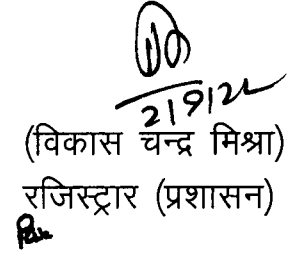 2/9/22
(विकास चन्द्र मिश्रा)
रजिस्ट्रार (प्रशासन)